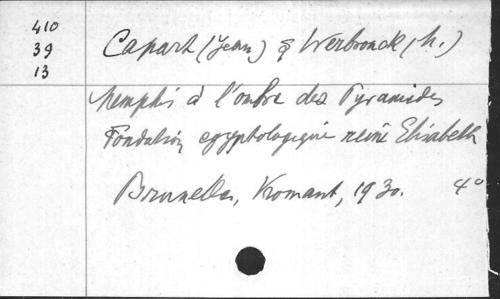 410
39
13
Capart (Jean) & Werbrouck (M.)
Memphis à l'ombre des Pyramides
Fondation egyptologique reine Elisabeth
Bruxelles, Vromant, 1930. 4°